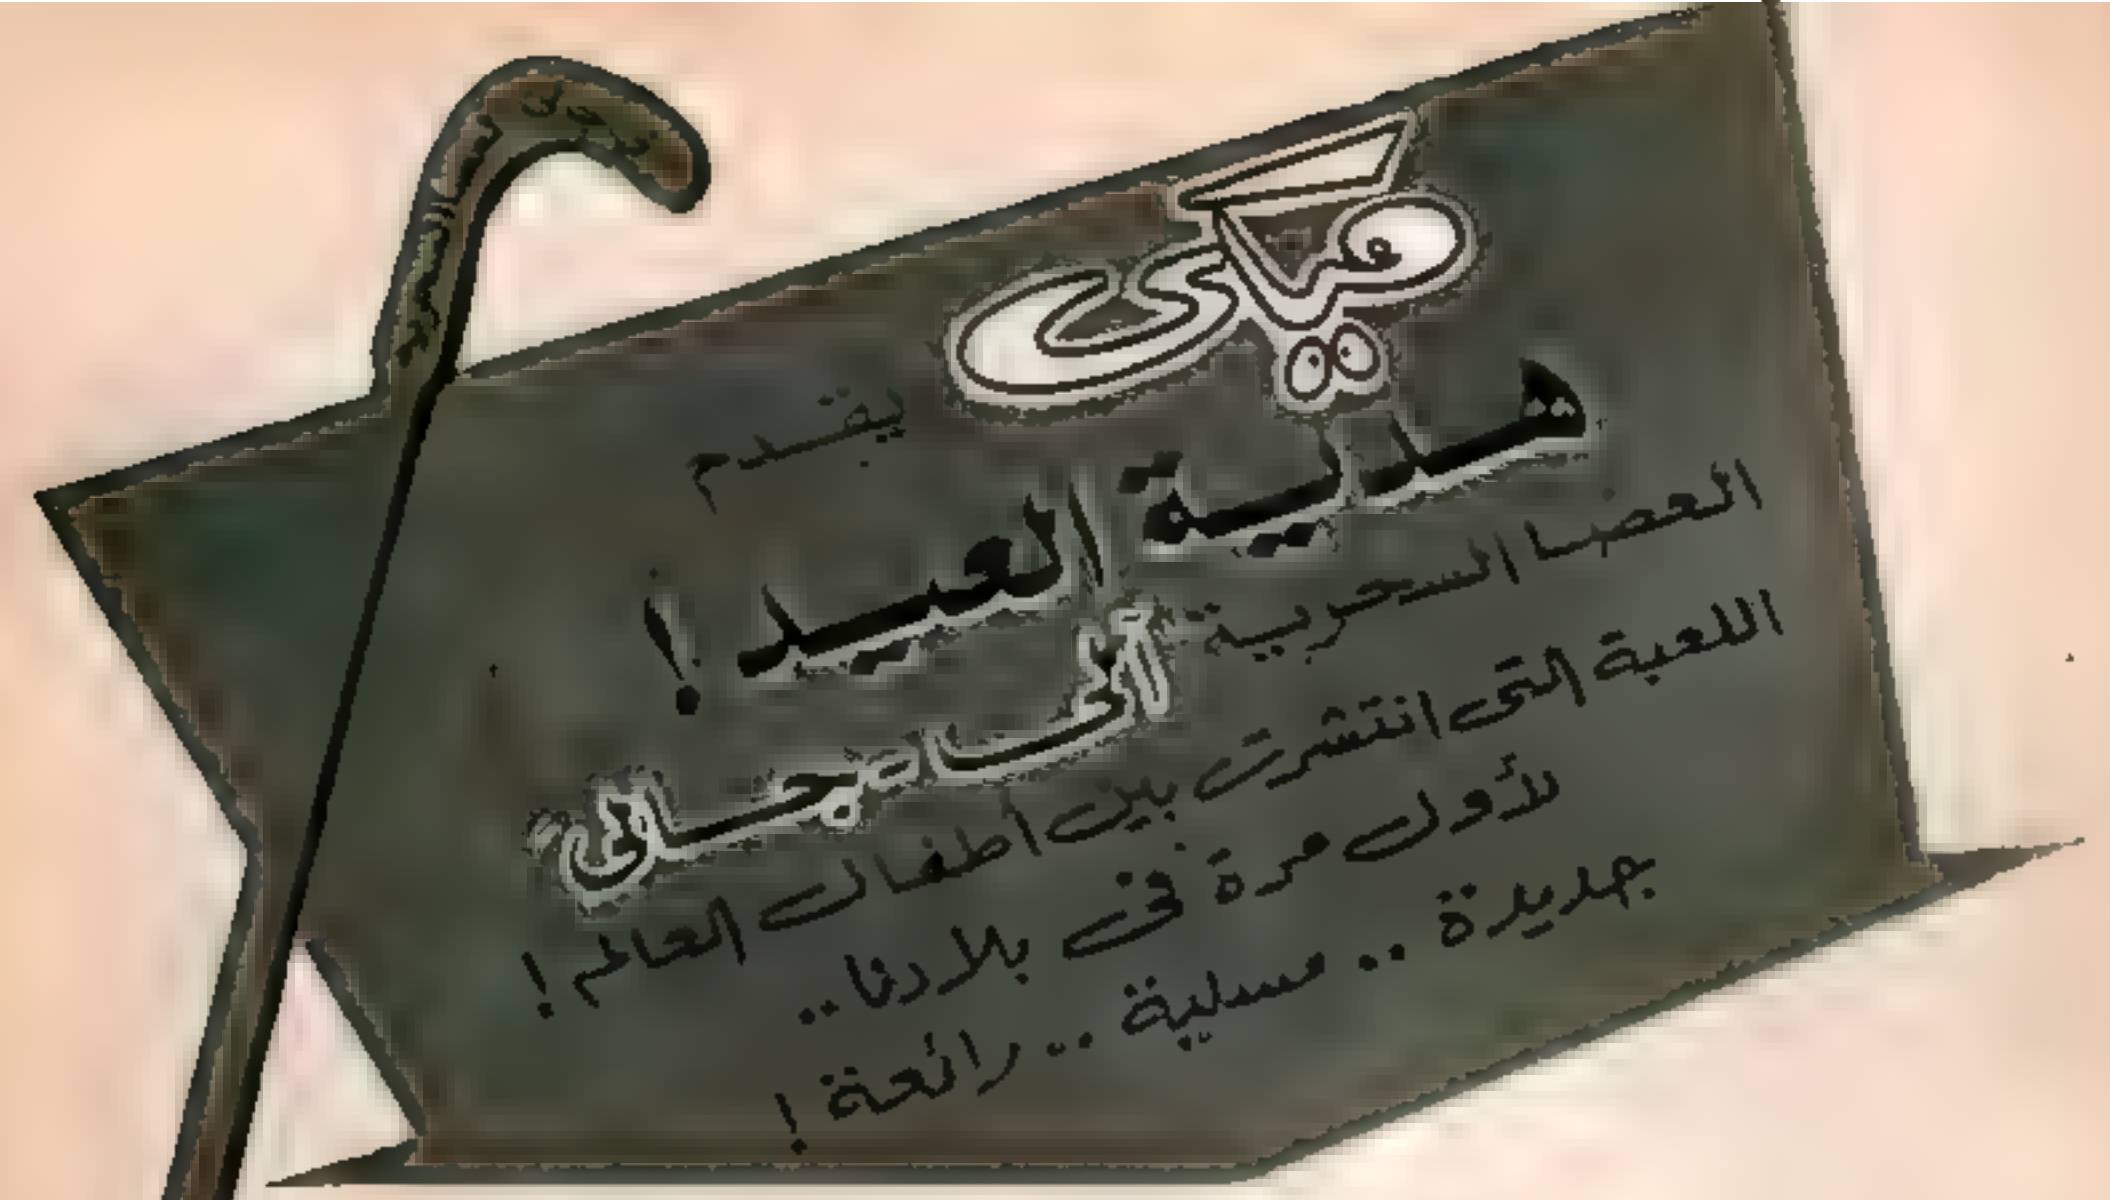 ميكى
يقدم
هدية العيد !
العصا السحرية
اللعبة التى انتشرت بين أطفال العالم !
لأول مرة فى بلادنا ..
جديدة .. مسلية .. رائعة !